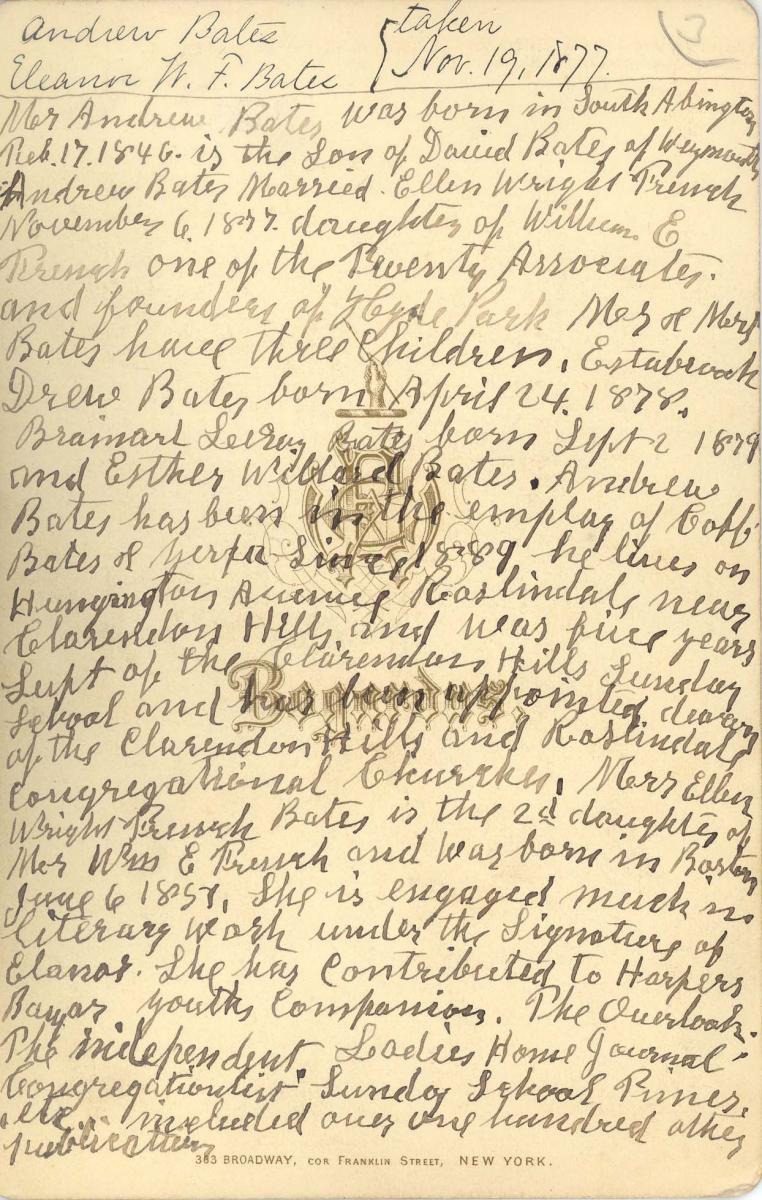 Andrew Bates
Eleanor W. F. Bates
taken
Nov. 19, 1877.
3
Mr Andrew Bates was born in South Abington
Feb. 17. 1846. is the Son of David Bates of Weymouth
Andrew Bates Married. Ellen Wright French
November 6. 1877. daughter of William E
French one of the Twenty Associates.
and founders of Hyde Park Mr & Mrs
Bates have three Children, Estabrook
Drew Bates born April 24. 1878.
Brainart Leeroy Bates born Sept 2 1879
and Esther Willard Bates. Andrew
Bates has been in the employ of Cobb
Bates & Yerxa Since 1889 he lives on
Avenue Roslindale near
Clarendon Hills and was five years
Supt of the Clarendon Hills Sunday
School and has been appointed deacon
of the Clarendon Hills and Roslindale
Congregational Churches, Mrs Ellen
Wright French Bates is the 2d daughter of
Mr Wm E French and was born in Boston
June 6 She is engaged much in
literary work under the Signature of
Elanor. She has Contributed to Harpers
Bazar Youths Companion. The Overlook.
The independent. Ladies Home Journal.
Congregationlist. Sunday School
etc. included over one hundred other
publication
Bogardus.
383 BROADWAY, COR FRANKLIN STREET, NEW YORK.